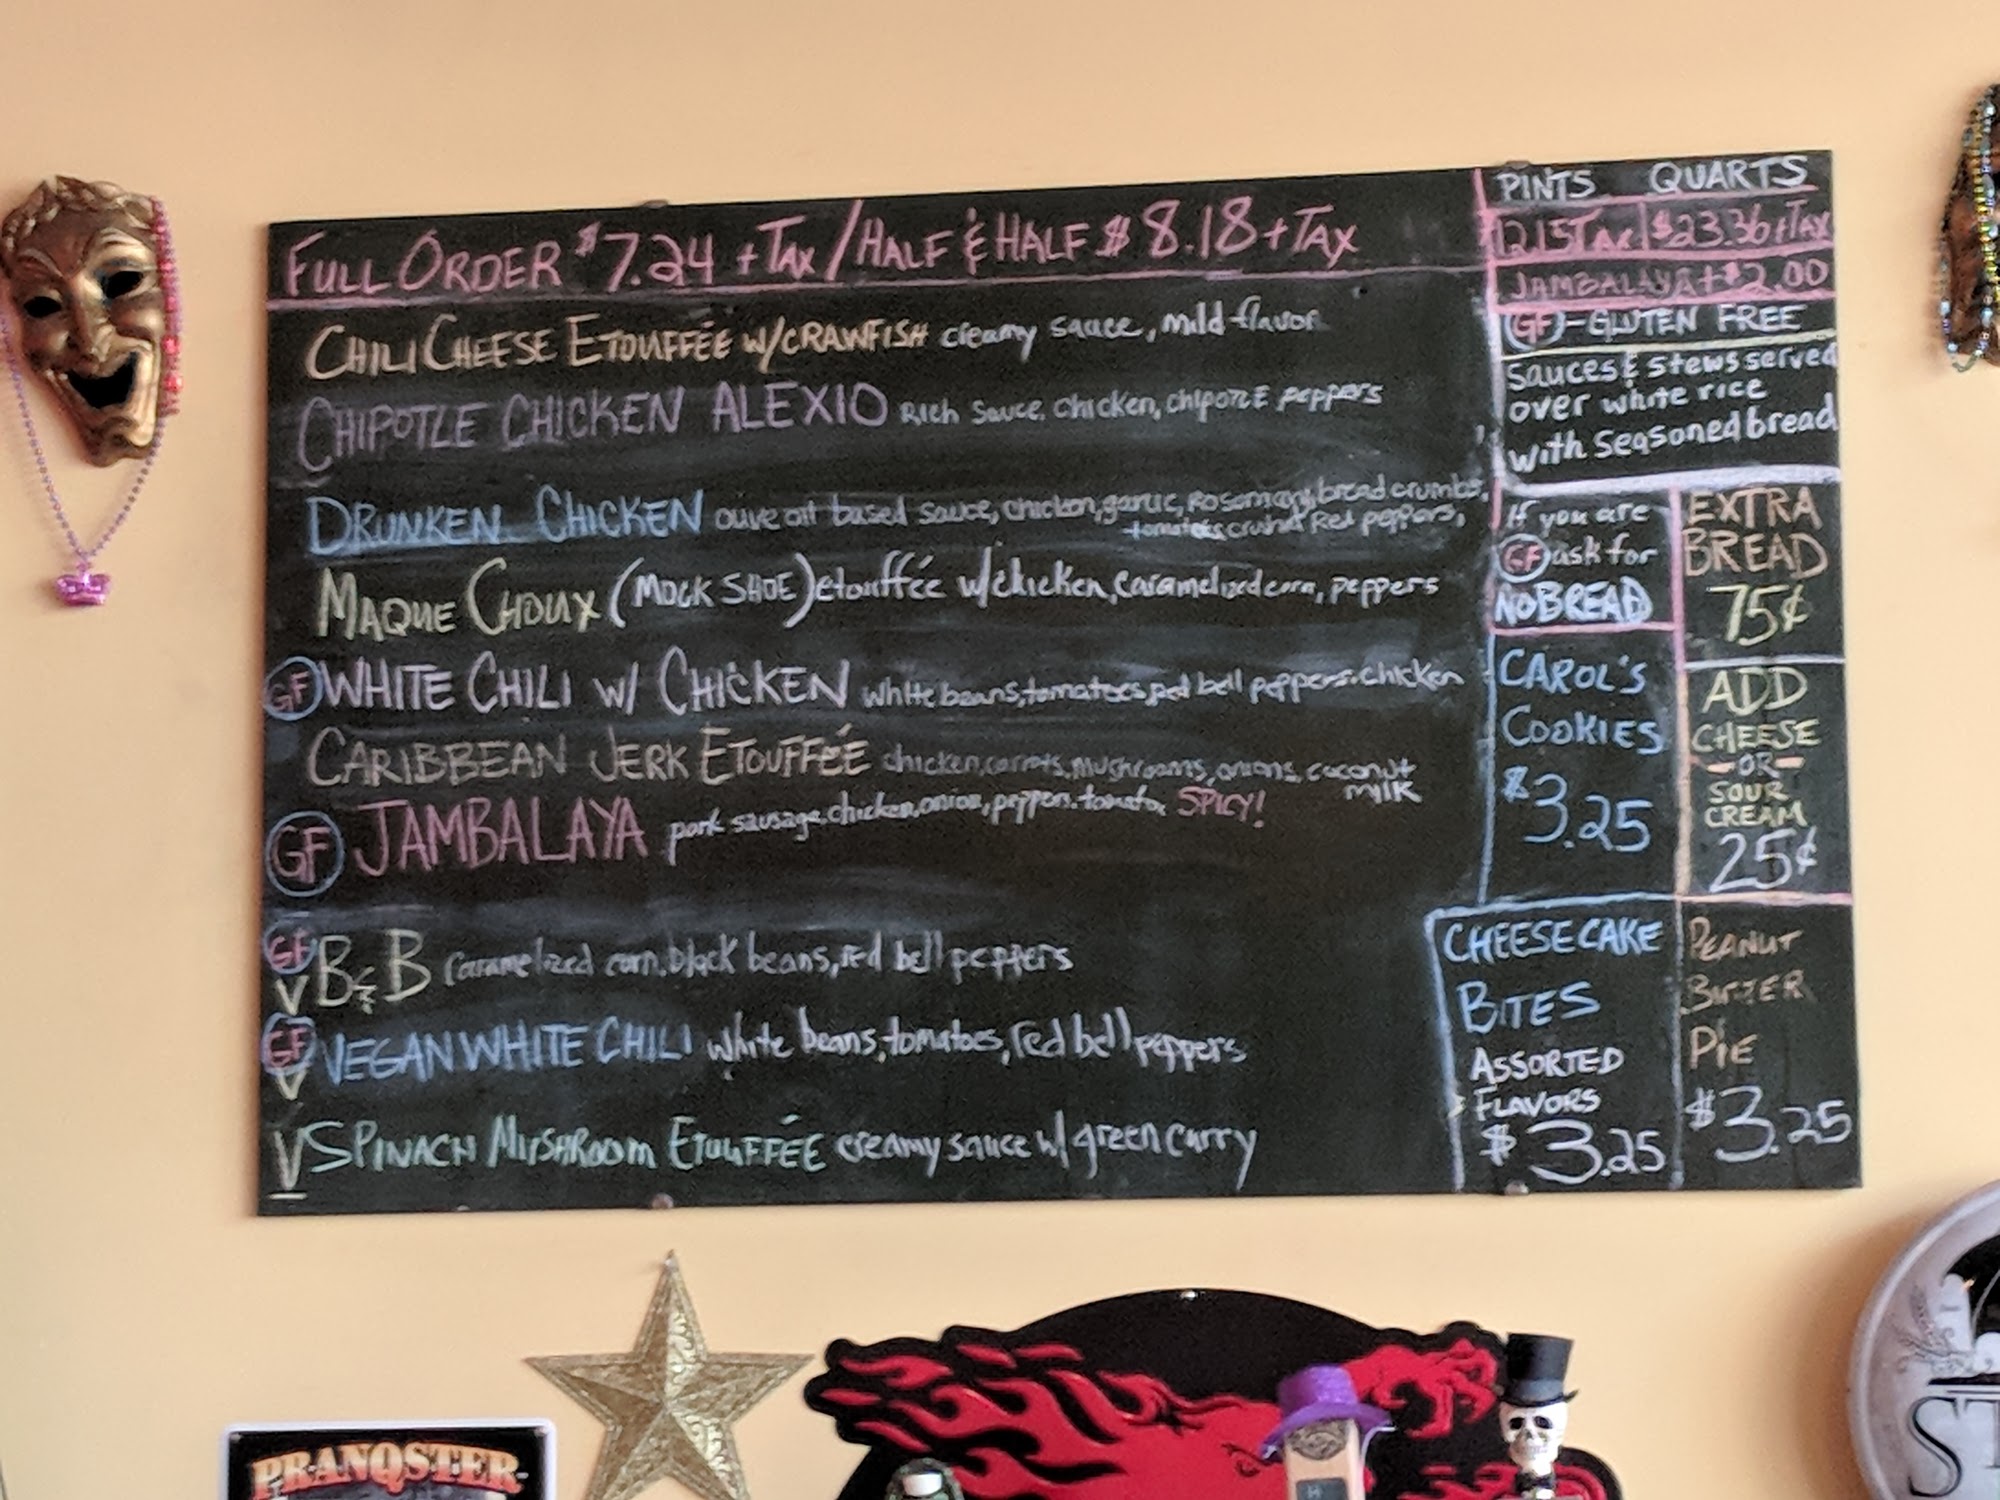 FULL ORDER $7.24 + TAX / HALF & HALF $8.18 + TAX
CHILI CHEESE ETOUFFÉE W/CRAWFISH creamy sauce, mild flavor
CHIPOTLE CHICKEN ALEXIO Rich Sauce, Chicken, chipotle peppers
DRUNKEN CHICKEN olive oil based sauce, chicken, garlic, Rosemary, bread crumbs,
tomatoes, crushed Red peppers,
MAQUE CHOUX (MOCK SHOE) etouffée w/chicken, caramelized corn, peppers
GF WHITE CHILI W/ CHICKEN white beans, tomatoes, red bell peppers, chicken
CARIBBEAN JERK ETOUFFÉE chicken, carrots, mushrooms, onions, coconut
milk
GF JAMBALAYA pork sausage, chicken, onion, peppers, tomato SPICY!
GF V B&B caramelized corn, black beans, red bell peppers
GF V VEGAN WHITE CHILI white beans, tomatoes, red bell peppers
V SPINACH MUSHROOM ETOUFFÉE creamy sauce w/ green curry
PINTS QUARTS
TAX $23.36 + TAX
JAMBALAYA + $2.00
GF - GLUTEN FREE
Sauces & stews served
over white rice
with seasoned bread
If you are
GF ask for
NO BREAD
EXTRA
BREAD
75¢
CAROL'S
COOKIES
$3.25
ADD
CHEESE
-OR-
SOUR
CREAM
25¢
CHEESECAKE
BITES
ASSORTED
FLAVORS
$3.25
PEANUT
BUTTER
PIE
$3.25
PRANQSTER
ST